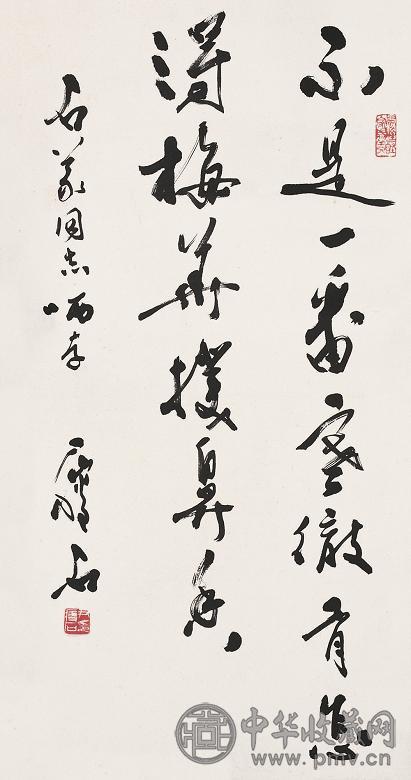 不是一番寒徹骨怎
得梅華撲鼻香
石同志哂存 瘦石
中华收藏网
www.pmv.cn